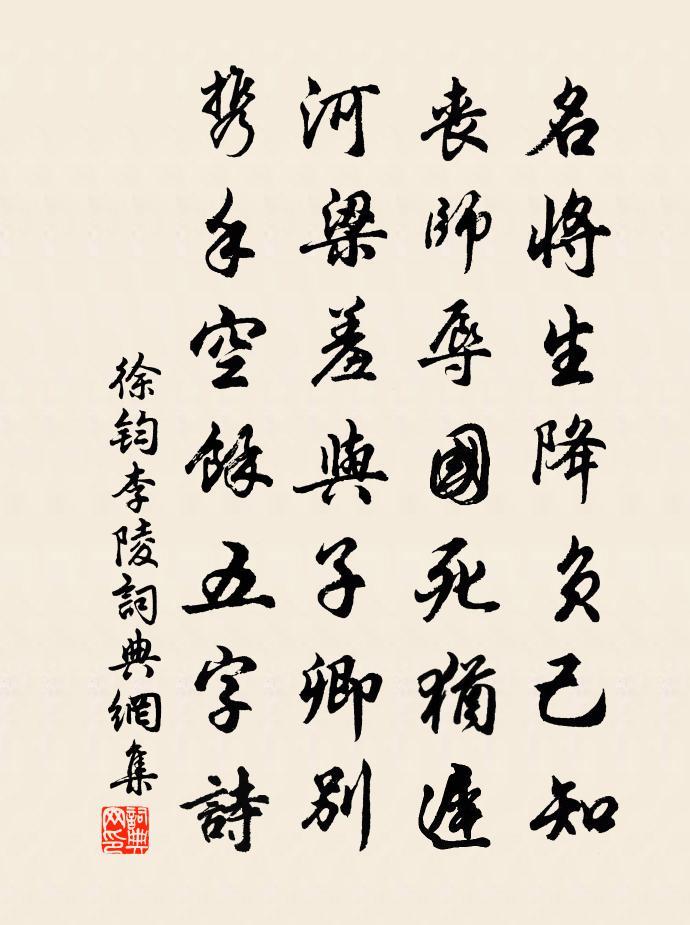 名將生降負己知
喪師辱國死猶遲
河梁羞與子卿別
携手空餘五字詩
徐鈞李陵詞典網集
詞典網印